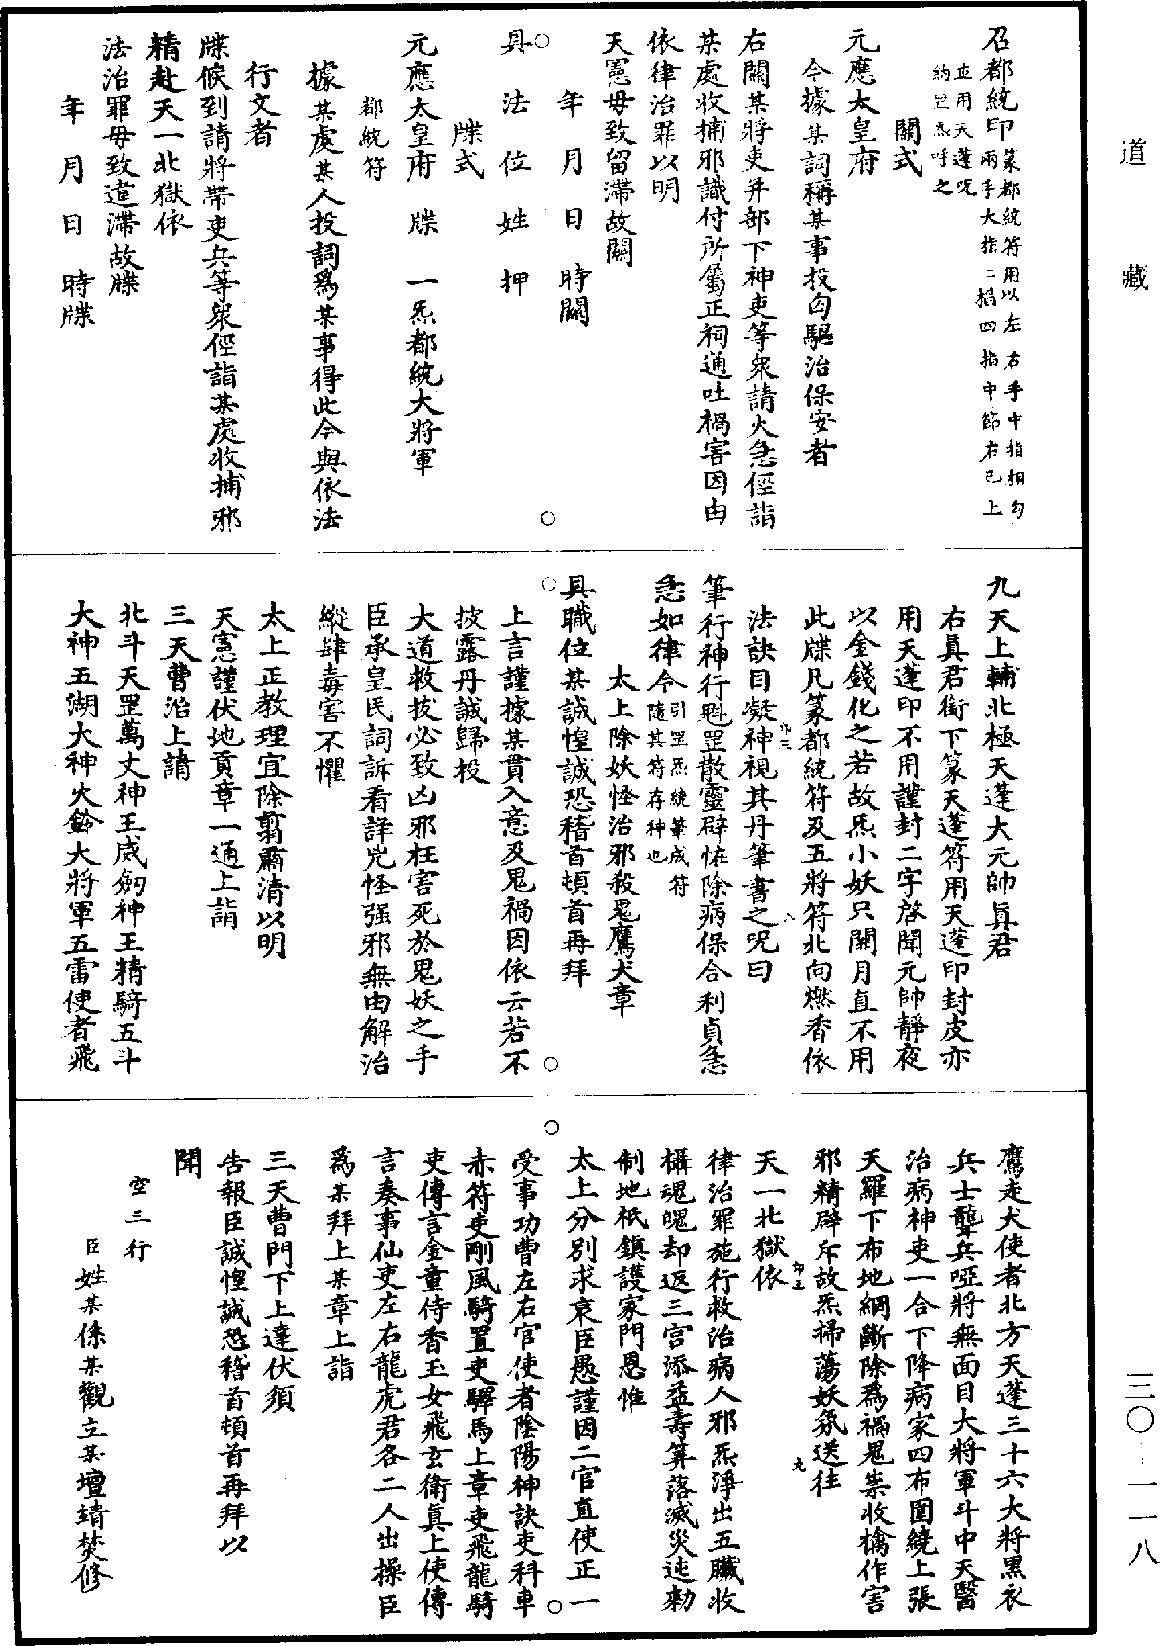 道藏
召都統印篆都統符用以左右手中指相勾
兩手大指二掐四指中節右已上
並用天蓬呪
納罡炁呼之
關式
元應太皇府
今據某詞稱某事投匄驅治保安者
右關某將吏并部下神吏等衆請火急徑詣
某處收捕邪讖付所屬正祠通吐禍害因由
依律治罪以明
天憲毋致留滯故關
年月日時關
具法位姓押
牒式
元應太皇府牒一炁都統大將軍
都統符
據某處某人投詞爲某事得此今與依法
行文者
牒候到請將帶吏兵等衆徑詣某處收捕邪
精赴天一北獄依
法治罪毋致違滯故牒
年月日時牒
九天上輔北極天蓬大元帥眞君
右眞君銜下篆天蓬符用天蓬印封皮亦
用天蓬印不用謹封二字啓聞元帥靜夜
以金錢化之若故炁小妖只關月直不用
此牒凡篆都統符及五將符北向燃香依
法訣目凝神視其丹筆書之呪曰
筆行神行魁罡散靈辟恠除病保合利貞急
急如律令引罡炁繞筆成符
隨其符存神也
太上除妖怪治邪殺鬼鷹犬章
具職位某誠惶誠恐稽首頓首再拜
上言謹據某貫入意及鬼禍因依云若不
披露丹誠歸投
大道救拔必致凶邪枉害死於鬼妖之手
臣承皇民詞訴看詳兇怪强邪無由解治
縱肆毒害不懼
太上正教理宜除翦肅清以明
天憲謹伏地貢章一通上詣
三天曹治上請
北斗天罡萬丈神王威劒神王精騎五斗
大神五湖大神火鈴大將軍五雷使者飛
鷹走犬使者北方天蓬三十六大將黑衣
兵士聾兵啞將無面目大將軍斗中天醫
治病神吏一合下降病家四布圍繞上張
天羅下布地網斷除爲禍鬼祟收擒作害
邪精辟斥故炁掃蕩妖氛送往
天一北獄依
律治罪施行救治病人邪炁淨出五臟收
攝魂魄却返三宫添益壽筭落滅災迍勑
制地祇鎮護家門恩惟
太上分別求哀臣愚謹因二官直使正一
受事功曹左右官使者陰陽神訣吏科車
赤符吏剛風騎置吏驛馬上章吏飛龍騎
吏傳言金童侍香玉女飛玄衛眞上使傳
言奏事仙吏左右龍虎君各二人出操臣
爲某拜上某章上詣
三天曹門下上達伏須
告報臣誠惶誠恐稽首頓首再拜以
聞
空三行
臣姓某係某觀立某壇靖焚修
三〇－一一八